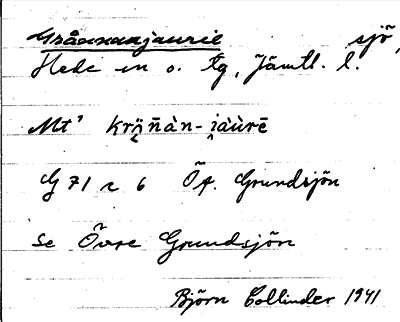 Gråånnanjaurie sjö,
Hede sn o. tg, Jämtl. l.
Mt' krö̱n̄àn-i̯àùrē
G 71 r 6 Öf. Grundsjön
Se Övre Grundsjön
Björn Collinder 1941